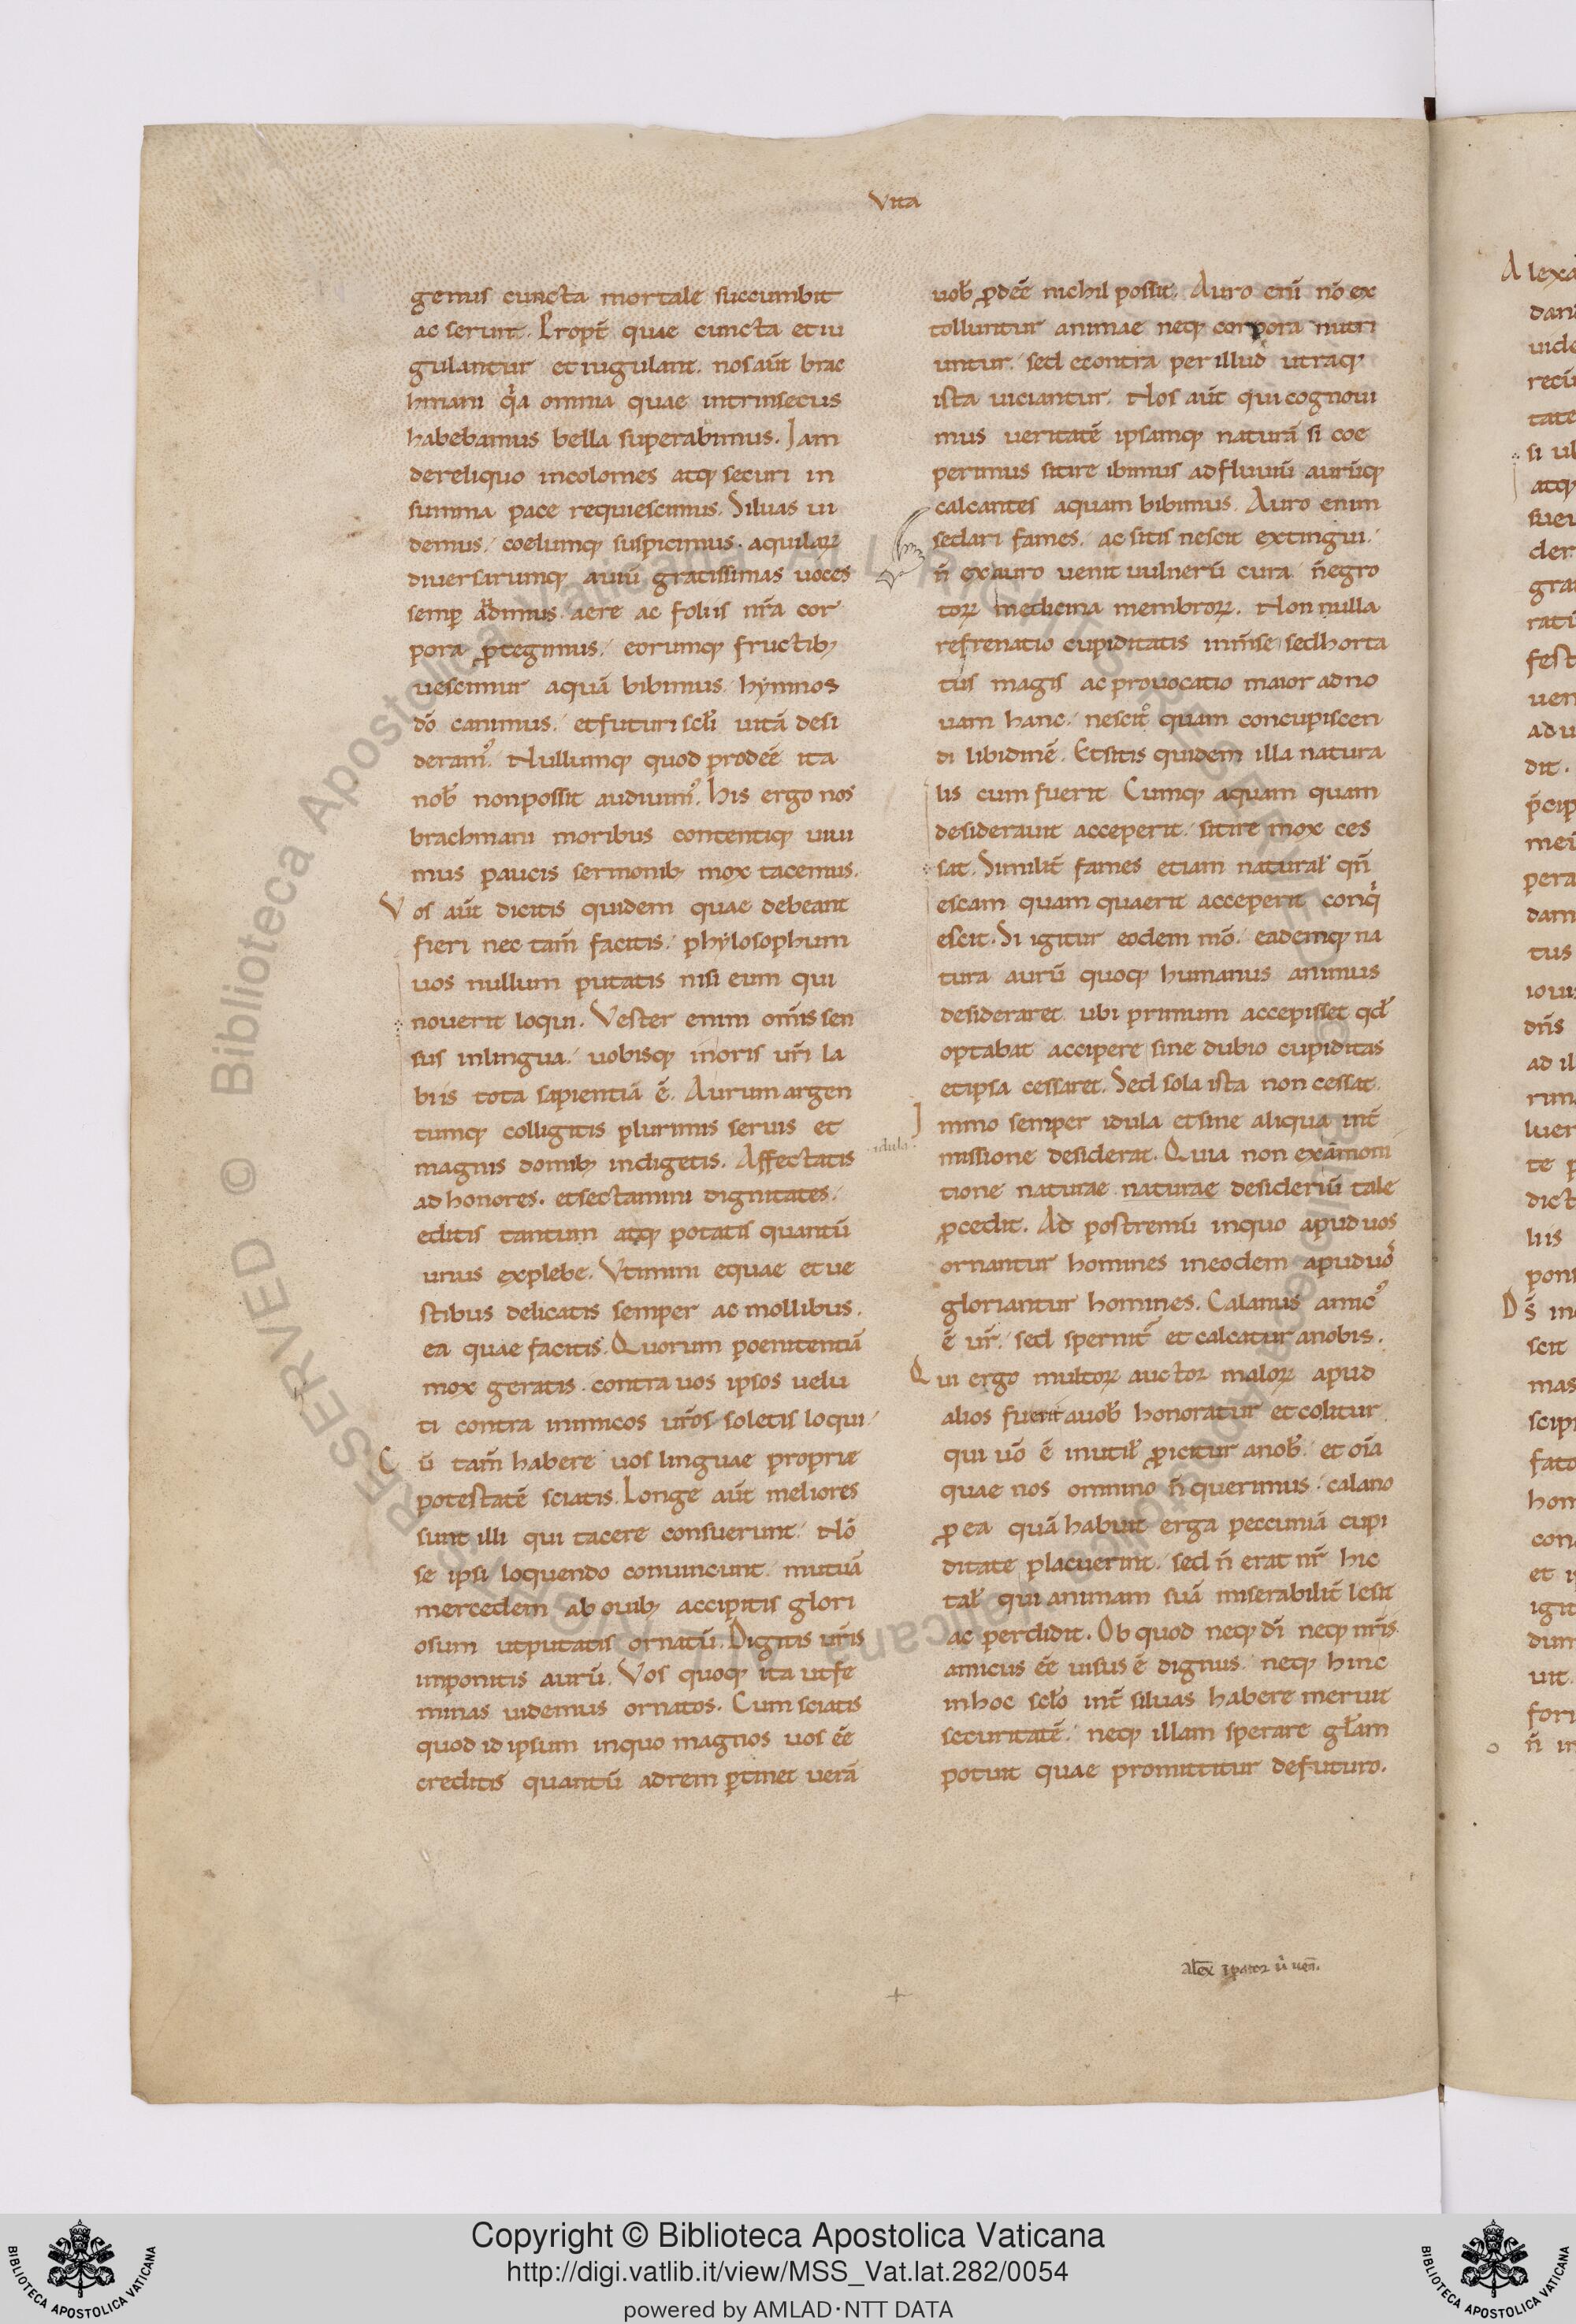 Vita
genus cuncta mortale succumbit
ac seruit. Propt̄ quae cuncta et iu
gulantur et iugulant. nos aūt brac
hmani qͥa omnia quae intrinsecus
habebamus bella superabimus. Jam
dereliquo incolomes atq; securi in
summa pace requiescimus. Siluas ui
demus. coelumq; suspicimus. aquilaꝝ
diuersarumq; auiū gratissimas uoces
semꝑ adimus. aere ac foliis nr̄a cor
pora ꝓtegimus. eorumq; fructib;
uescimur aquā bibimus. hymnos
dō canimus. et futuri sclī uitā desi
deramꝰ. Nullumq; quod prodeē ita
nob̄ non possit audiuimꝰ. His ergo nos
brachmani moribus contentiq; uiui
mus paucis sermonib; mox tacemus.
Vos aūt dicitis quidem quae debeant
fieri nec tam̄ facitis. phylosophum
uos nullum putatis nisi eum qui
nouerit loqui. Vester enim om̄is sen
sus in lingua. uobisq; in oris ur̄i la
biis tota sapientiā ē. Aurum argen
tumq; colligitis plurimis seruis et
magnis domib; indigetis. Affectatis
ad honores. et sectamini dignitates.
editis tantum atq; potatis quantū
unus explebe. Vtimini equae et ue
stibus delicatis semper ac mollibus.
ea quae facitis. Quorum poenitentiā
mox geratis. contra uos ipsos uelu
ti contra inimicos ur̄os soletis loqui.
Cū tam̄ habere uos linguae proprie
potestatē sciatis. Longe aūt meliores
sunt illi qui tacere consuerunt. Nō
se ipsi loquendo conuincunt. mutuā
mercedem ab ouib; accipitis glori
osum ut putatis ornatū. Digitis ur̄is
imponitis aurū. Vos quoq; ita ut fe
minas uidemus ornatos. Cum sciatis
quod id ipsum in quo magnos uos eē
creditis quantū ad rem ꝑtinet uerā
uob̄ ꝓdeē nichil possit. Auro enī nō ex
tolluntur animae neq; corpora nutri
untur. sed econtra per illud utraq;
ista uiciantur. Nos aūt qui cognoui
mus ueritatē ipsamq; naturā si coe
perimus sitire ibimus ad fluuiū aurūq;
calcantes aquam bibimus. Auro enim
sedari fames. ac sitis nescit extingui.
n̄ ex auro uenit uulnerū cura. n̄ egro
toꝝ medicina membroꝝ. Non nulla
refrenatio cupiditatis inm̄se sed horta
tus magis ac prouocatio maior ad no
uam hanc. nescitꝰ quam concupiscen
di libidinē. Et sitis quidem illa natura
lis cum fuerit Cumq; aquam quam
desiderauit acceperit. sitire mox ces
sat. Similit̄ fames etiam natural̄ qn̄
escam quam quaerit acceperit conqͥ
escit. Si igitur eodem mō. eademq; na
tura aurū quoq; humanus animus
desideraret ubi primum accepisset qd̄
optabat accipere sine dubio cupiditas
et ipsa cessaret. Sed sola ista non cessat.
Immo semper idula et sine aliqua int̄
idula
missione desiderat. Quia non ex amoni
tione naturae naturae desideriū tale
ꝓcedit. Ad postremū in quo apud uos
ornantur homines in eodem apud uos
gloriantur homines. Calanus amicꝰ
ē ur̄. sed spernit̄ et calcatur a nobis.
Qui ergo multoꝝ auctor maloꝝ apud
alios fuerit a uob̄ honoratur et colitur
qui uō ē inutil̄ ꝓicitur a nob̄. et oīa
quae nos omnino n̄ querimus. calano
ꝓ ea quā habuit erga peccuniā cupi
ditate placuerint. sed n̄ erat nr̄ hic
tal̄ qui animam suā miserabilit̄ lesit
ac perdidit. Ob quod neq; dī neq; nr̄is
amicus eē uisus ē dignus. neq; hinc
in hoc sclō int̄ siluas habere meruit
securitatē. neq; illam sperare gl̄am
potuit quae promittitur de futuro.
Copyright © Biblioteca Apostolica Vaticana
http://digi.vatlib.it/view/MSS_Vat.lat.282/0054
powered by AMLAD·NTT DATA
BIBLIOTECA APOSTOLICA VATICANA
BIBLIOTECA APOSTOLICA VATICANA